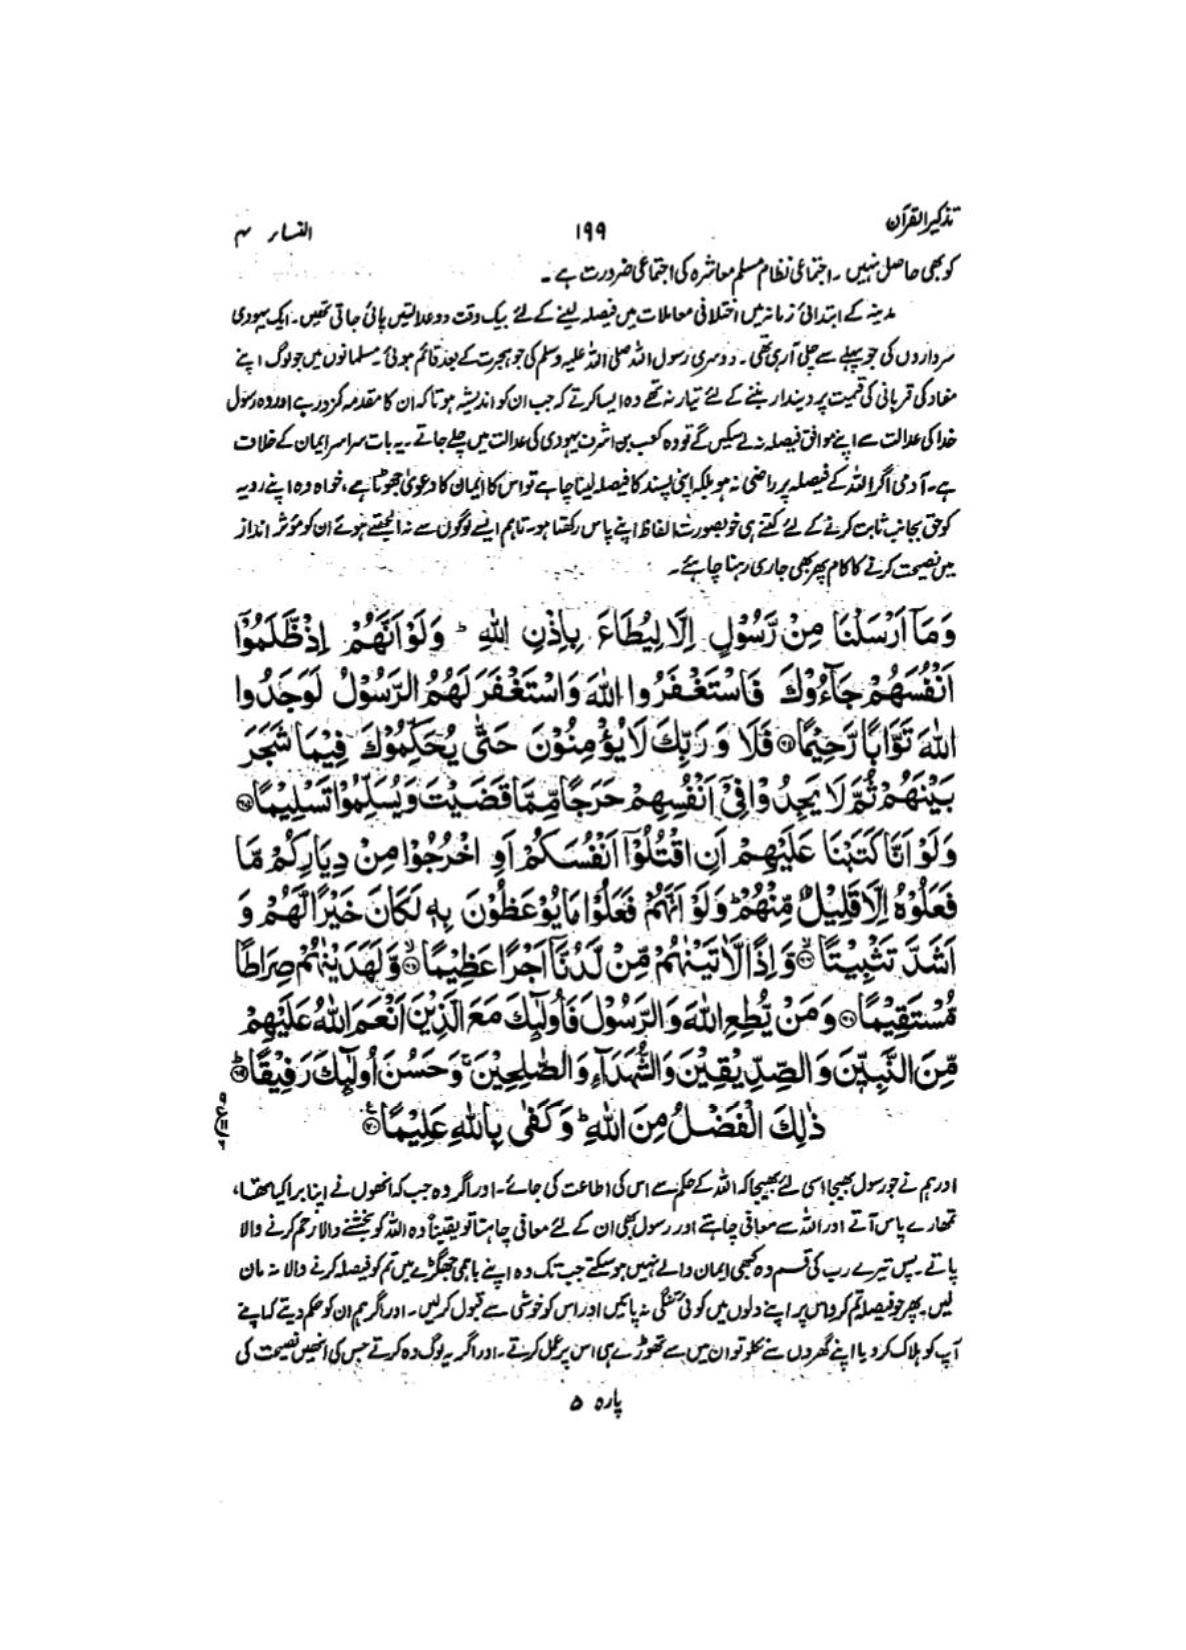 تذکیر القرآن ۱۹۹ النساء ۴
کو بھی حاصل نہیں ۔ اجتماعی نظام مسلم معاشرہ کی اجتماعی ضرورت ہے ۔
مدینہ کے ابتدائی زمانہ میں اختلافی معاملات میں فیصلہ لینے کے لئے بیک وقت دو عدالتیں پائی جاتی تھیں۔ ایک یہودی
سرداروں کی جو پہلے سے چلی آرہی تھی ۔ دوسری رسول اللہ صلی اللہ علیہ وسلم کی جو ہجرت کے بعد قائم ہوئی۔ مسلمانوں میں جو لوگ اپنے
مفاد کی قربانی کی قیمت پر دیندار بننے کے لئے تیار نہ تھے وہ ایسا کرتے کہ جب ان کو اندیشہ ہوتا کہ ان کا مقدمہ کمزور ہے اور وہ رسول
خدا کی عدالت سے اپنے موافق فیصلہ نہ لے سکیں گے تو وہ کعب بن اشرف یہودی کی عدالت میں چلے جاتے ۔ یہ بات سراسر ایمان کے خلاف
ہے۔ آدمی اگر اللہ کے فیصلہ پر راضی نہ ہو بلکہ اپنی پسند کا فیصلہ لینا چاہے تو اس کا ایمان کا دعویٰ جھوٹا ہے، خواہ وہ اپنے رویہ
کو حق بجانب ثابت کرنے کے لئے کتنے ہی خوبصورت الفاظ اپنے پاس رکھتا ہو۔ تاہم ایسے لوگوں سے نہ الجھتے ہوئے ان کو مؤثر انداز
میں نصیحت کرنے کا کام پھر بھی جاری رہنا چاہئے۔
وَمَآ اَرْسَلْنَا مِنْ رَّسُوْلٍ اِلَّا لِيُطَاعَ بِاِذْنِ اللّٰهِ ؕ وَلَوْ اَنَّهُمْ اِذْ ظَّلَمُوْٓا
اَنْفُسَهُمْ جَآءُوْكَ فَاسْتَغْفَرُوا اللّٰهَ وَاسْتَغْفَرَ لَهُمُ الرَّسُوْلُ لَوَجَدُوا
اللّٰهَ تَوَّابًا رَّحِيْمًا ﴿۶۴﴾ فَلَا وَرَبِّكَ لَا يُؤْمِنُوْنَ حَتّٰى يُحَكِّمُوْكَ فِيْمَا شَجَرَ
بَيْنَهُمْ ثُمَّ لَا يَجِدُوْا فِيْٓ اَنْفُسِهِمْ حَرَجًا مِّمَّا قَضَيْتَ وَيُسَلِّمُوْا تَسْلِيْمًا ﴿۶۵﴾
وَلَوْ اَنَّا كَتَبْنَا عَلَيْهِمْ اَنِ اقْتُلُوْٓا اَنْفُسَكُمْ اَوِ اخْرُجُوْا مِنْ دِيَارِكُمْ مَّا
فَعَلُوْهُ اِلَّا قَلِيْلٌ مِّنْهُمْ ؕ وَلَوْ اَنَّهُمْ فَعَلُوْا مَا يُوْعَظُوْنَ بِهٖ لَكَانَ خَيْرًا لَّهُمْ وَ
اَشَدَّ تَثْبِيْتًا ﴿۶۶﴾ۙ وَّاِذًا لَّاٰتَيْنٰهُمْ مِّنْ لَّدُنَّآ اَجْرًا عَظِيْمًا ﴿۶۷﴾ۙ وَّلَهَدَيْنٰهُمْ صِرَاطًا
مُّسْتَقِيْمًا ﴿۶۸﴾ وَمَنْ يُّطِعِ اللّٰهَ وَالرَّسُوْلَ فَاُولٰٓئِكَ مَعَ الَّذِيْنَ اَنْعَمَ اللّٰهُ عَلَيْهِمْ
مِّنَ النَّبِيّٖنَ وَالصِّدِّيْقِيْنَ وَالشُّهَدَآءِ وَالصّٰلِحِيْنَ ۚ وَحَسُنَ اُولٰٓئِكَ رَفِيْقًا ﴿۶۹﴾ؕ
ذٰلِكَ الْفَضْلُ مِنَ اللّٰهِ ؕ وَكَفٰى بِاللّٰهِ عَلِيْمًا ﴿۷۰﴾
اور ہم نے جو رسول بھیجا اسی لئے بھیجا کہ اللہ کے حکم سے اس کی اطاعت کی جائے۔ اور اگر وہ جب کہ انھوں نے اپنا برا کیا تھا،
تمھارے پاس آتے اور اللہ سے معافی چاہتے اور رسول بھی ان کے لئے معافی چاہتا تو یقیناً وہ اللہ کو بخشنے والا رحم کرنے والا
پاتے۔ پس تیرے رب کی قسم وہ کبھی ایمان والے نہیں ہو سکتے جب تک وہ اپنے باہمی جھگڑے میں تم کو فیصلہ کرنے والا نہ مان
لیں۔ پھر جو فیصلہ تم کرو اس پر اپنے دلوں میں کوئی تنگی نہ پائیں اور اس کو خوشی سے قبول کرلیں۔ اور اگر ہم ان کو حکم دیتے کہ اپنے
آپ کو ہلاک کرو یا اپنے گھروں سے نکلو تو ان میں سے تھوڑے ہی اس پر عمل کرتے۔ اور اگر یہ لوگ وہ کرتے جس کی انھیں نصیحت کی
پارہ ۵